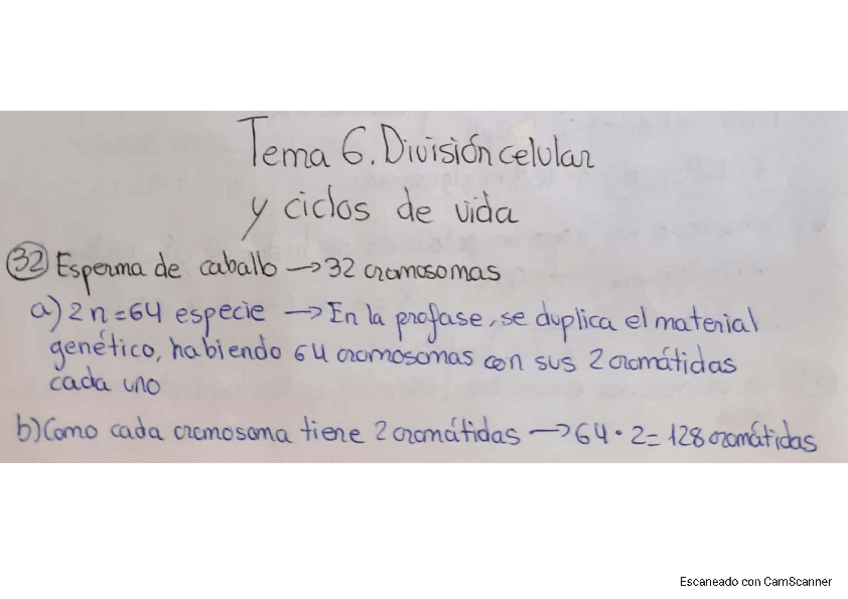 Tema 6. División celular
y ciclos de vida
32 Esperma de caballo → 32 cromosomas
a) 2n=64 especie → En la profase, se duplica el material
genético, habiendo 64 cromosomas con sus 2 cromátidas
cada uno
b) Como cada cromosoma tiene 2 cromátidas → 64 · 2 = 128 cromátidas
Escaneado con CamScanner